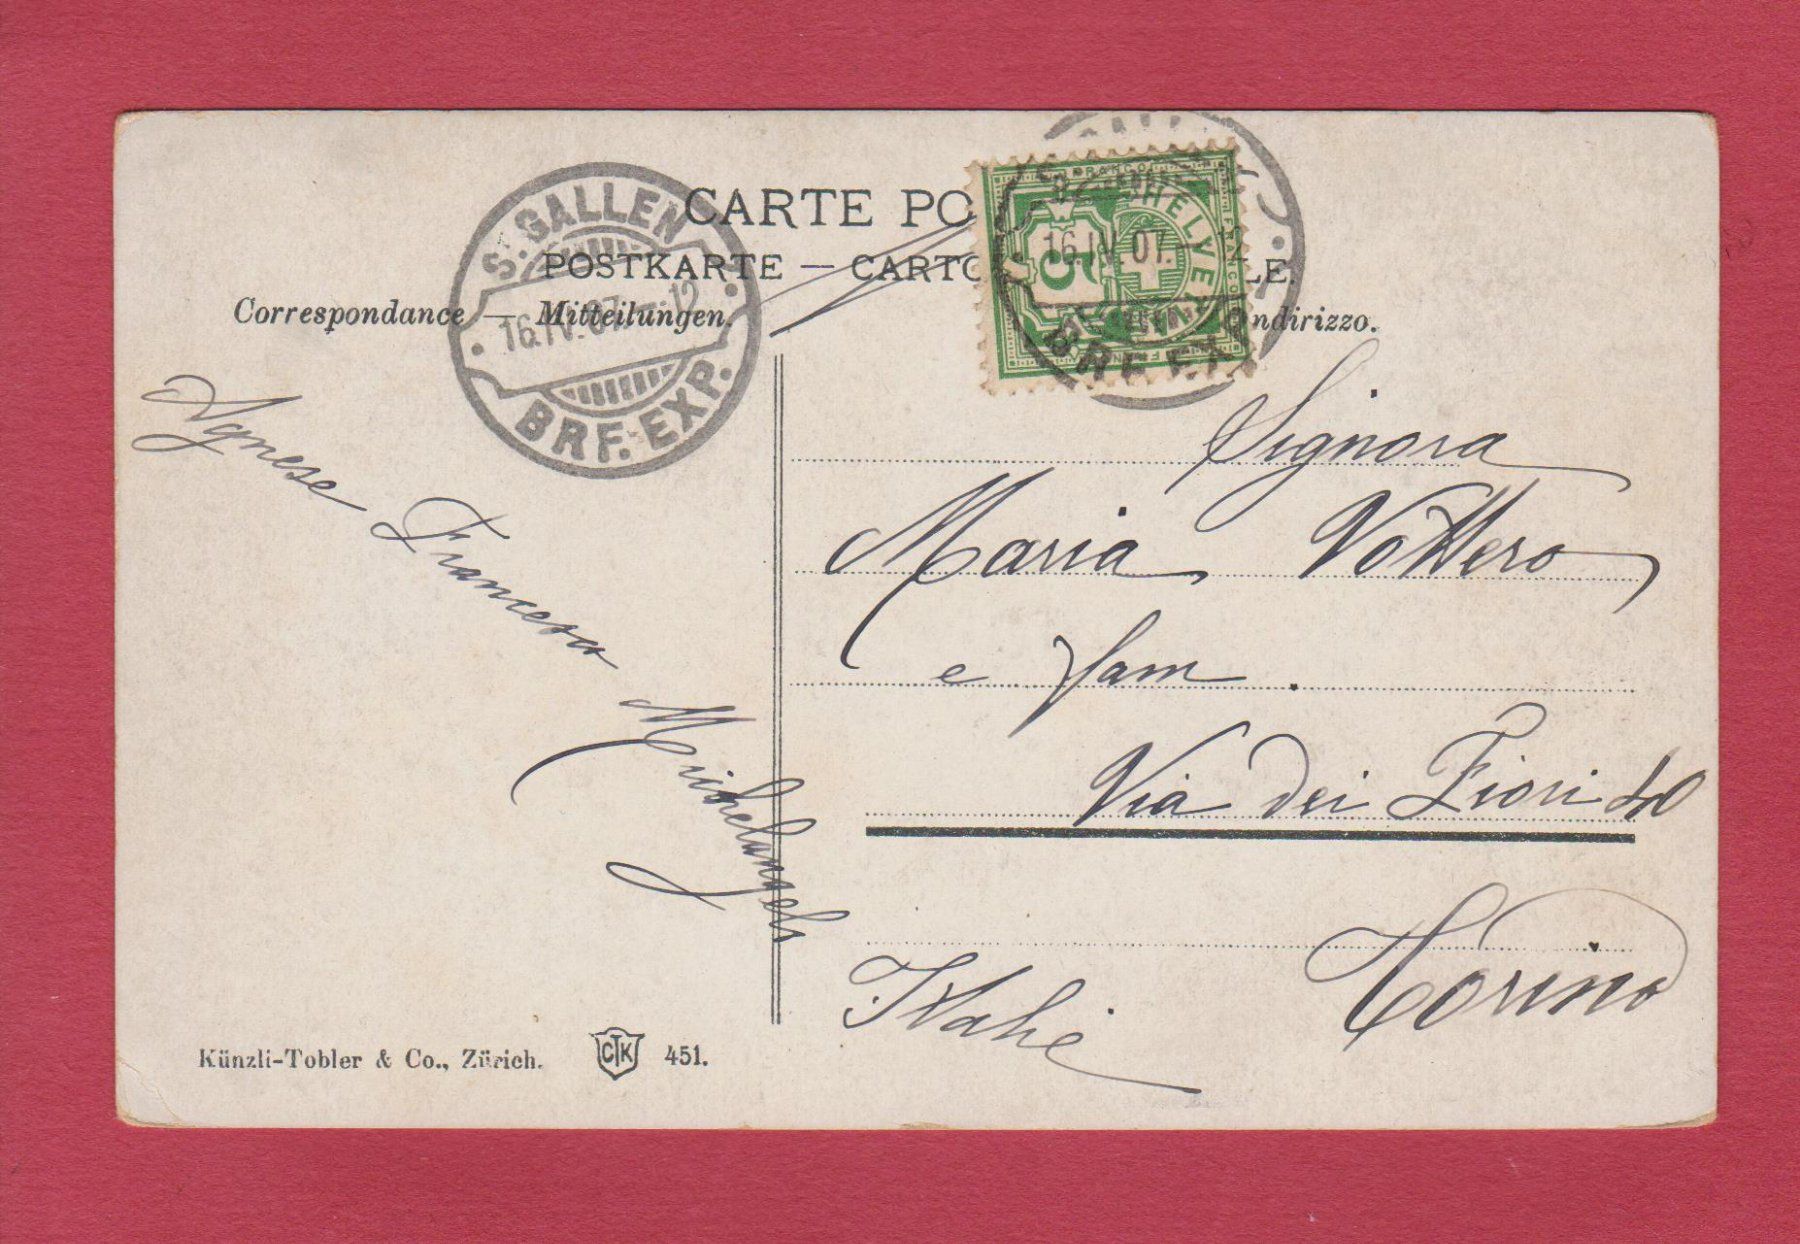 CARTE PO
POSTKARTE — CARTO LE.
Correspondance — Mitteilungen. ndirizzo.
S! GALLEN
16.IV.07.–12
BRF. EXP.
FRANCO
HELVETIA
5
16.IV.07.–12
BRF. EXP.
Agnese Francesca Michelangelo
Signora
Maria Vottero
e fam.
Via dei Fiori 40
Torino
Italie
Künzli-Tobler & Co., Zürich. CTK 451.